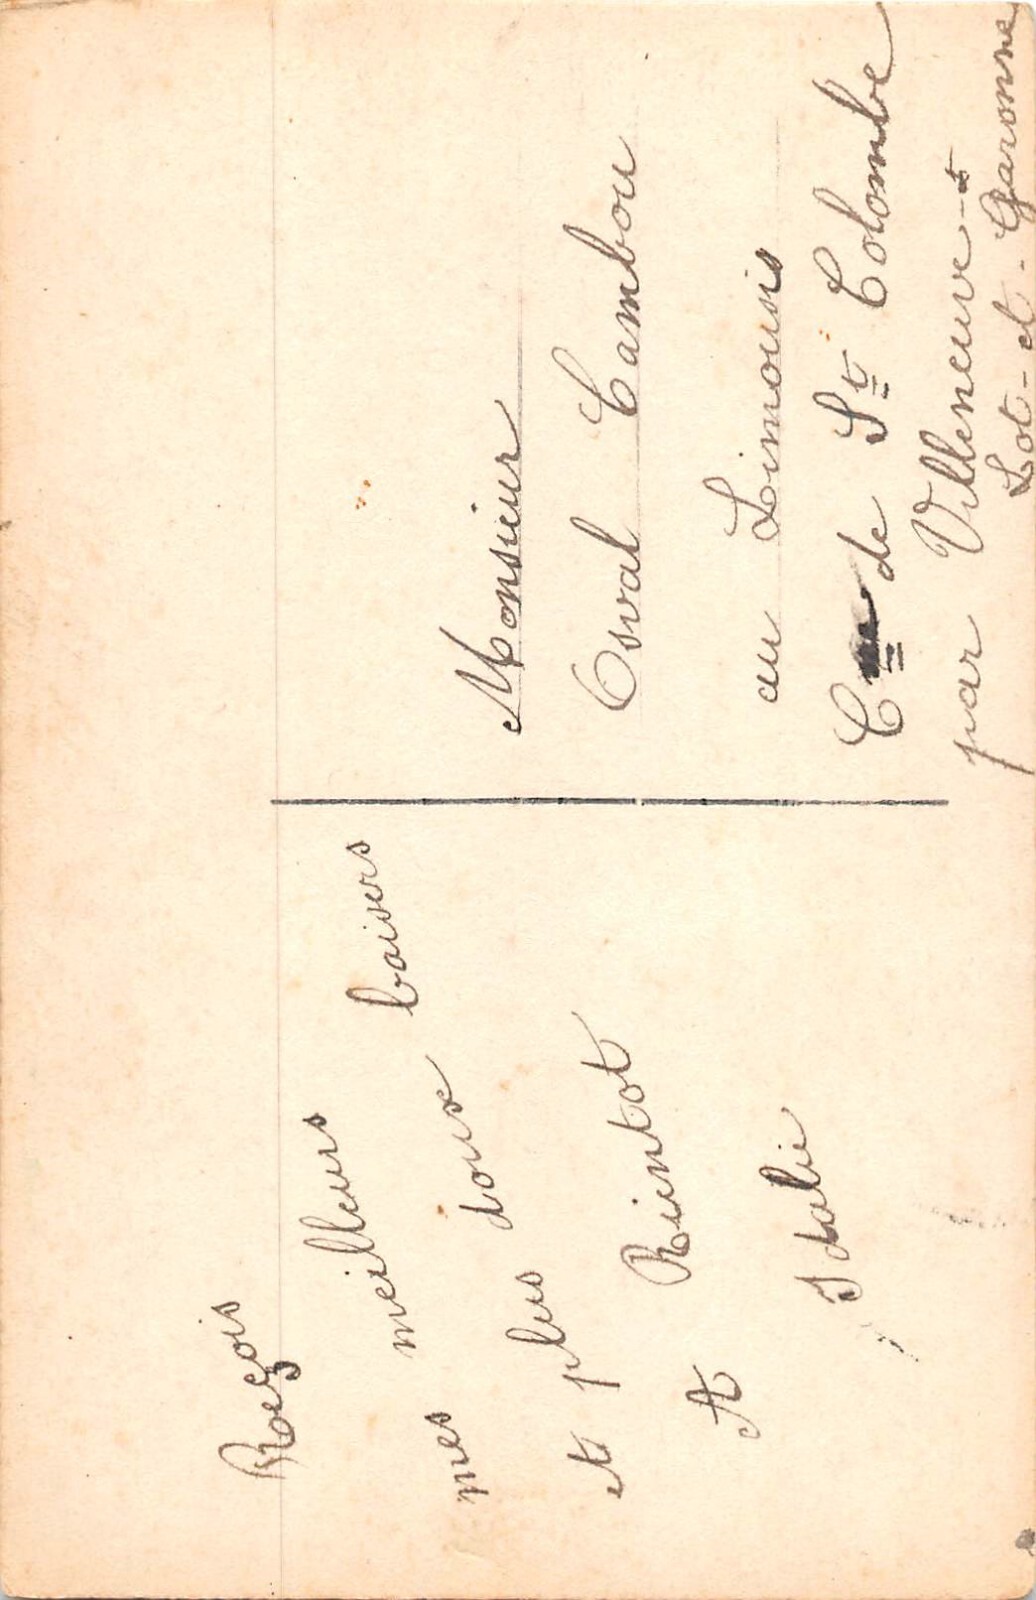 Reçois
mes meilleurs baisers
et plus doux
A Bientôt
Idalie
Monsieur
Osval Cambou
au Limouzis
Cne de St Colombe
par Villeneuve-
Lot-et-Garonne